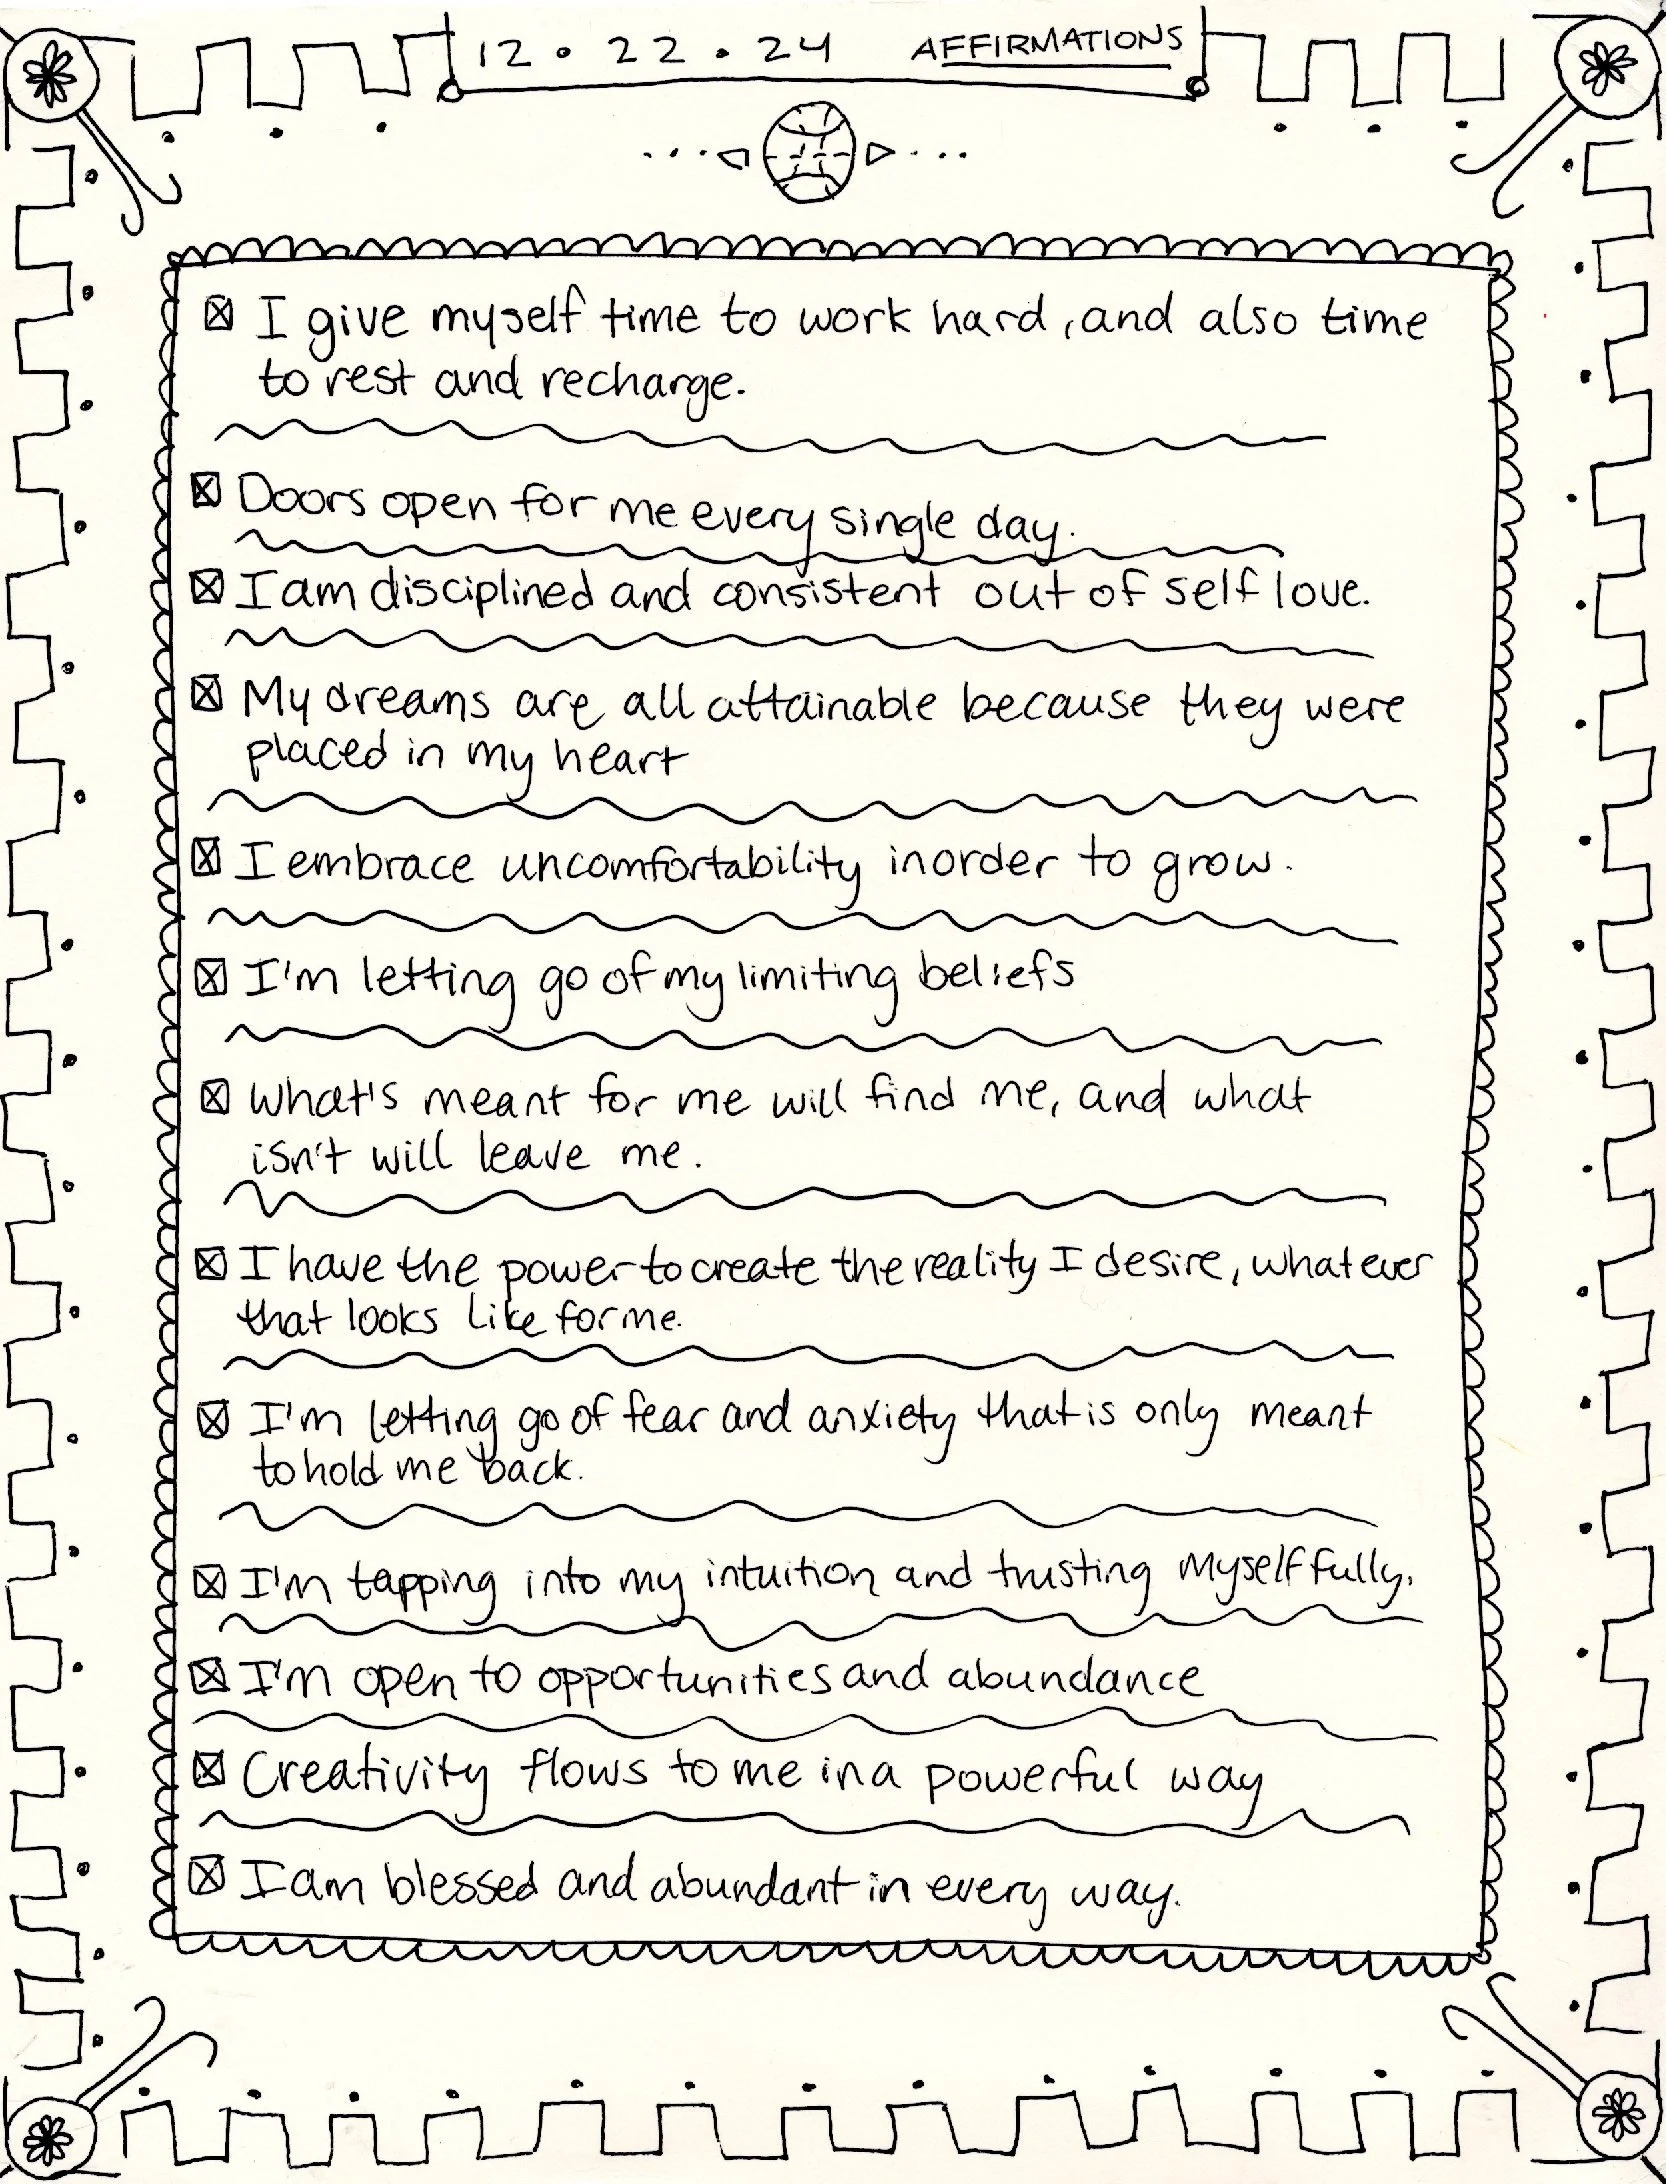 12 • 22 • 24 AFFIRMATIONS
☒ I give myself time to work hard, and also time
to rest and recharge.
☒ Doors open for me every single day.
☒ I am disciplined and consistent out of self love.
☒ My dreams are all attainable because they were
placed in my heart
☒ I embrace uncomfortability inorder to grow.
☒ I'm letting go of my limiting beliefs
☒ What's meant for me will find me, and what
isn't will leave me.
☒ I have the power to create the reality I desire, whatever
that looks like for me.
☒ I'm letting go of fear and anxiety that is only meant
to hold me back.
☒ I'm tapping into my intuition and trusting myself fully.
☒ I'm open to opportunities and abundance
☒ Creativity flows to me in a powerful way
☒ I am blessed and abundant in every way.